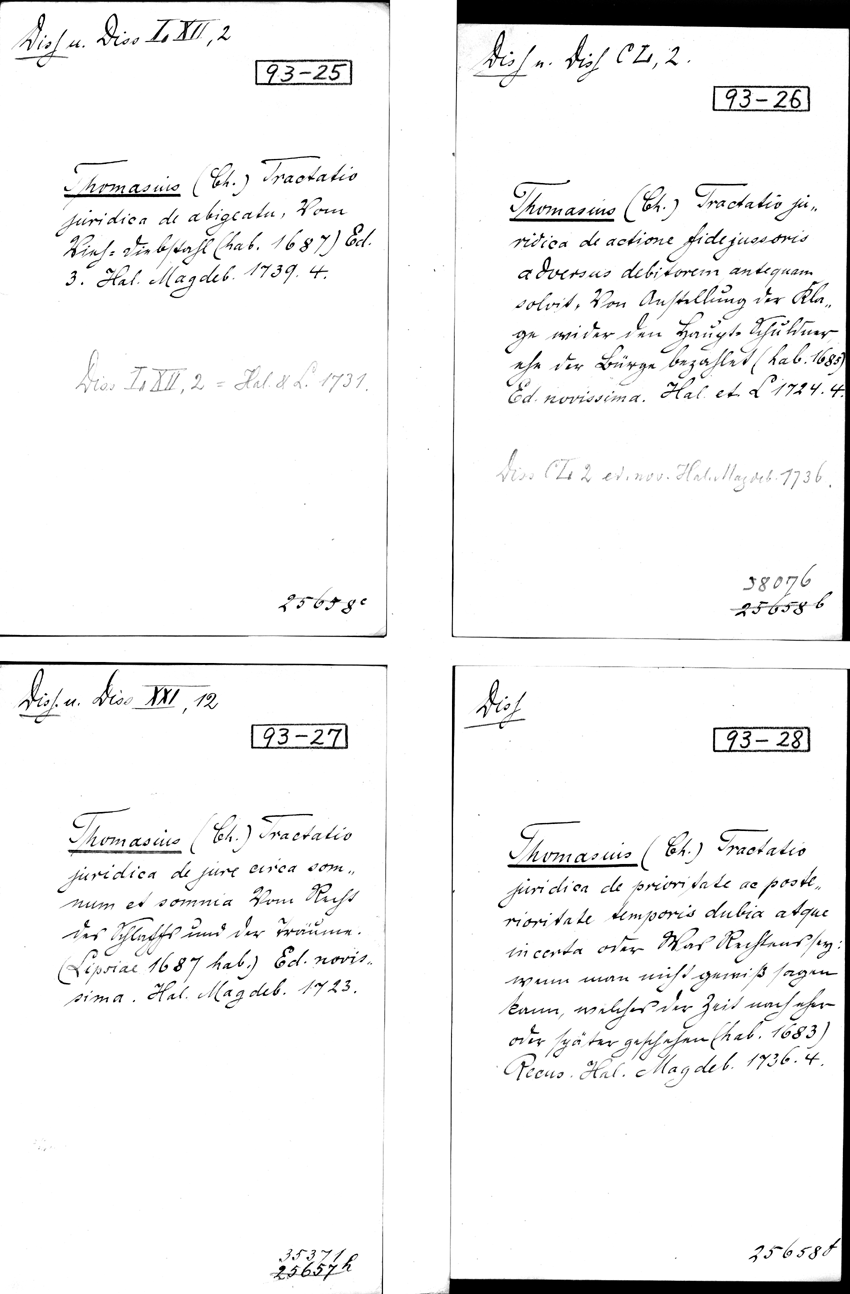 Diss u. Diss LXII, 2
93-25
Thomasius (Ch.) Tractatio
juridica de abigeatu, Vom
Vieh= diebstahl (hab. 1687) Ed.
3. Hal. Magdeb. 1739. 4.
Diss LXII, 2 = Hal. & L. 1731.
25658c
Diss u. Diss CL, 2.
93-26
Thomasius (Ch.) Tractatio ju„
ridica de actione fidejussoris
adversus debitorem antequam
solvit, Von Anstellung der Kla„
ge wider den Haupt= Schuldner
ehe der Bürge bezahlet (hab. 1685)
Ed. novissima. Hal. et L 1724. 4.
Diss CL, 2 ed. nov. Hal. Magdeb. 1736.
38076
25658 b
Diss. u. Diss XXI, 12
93-27
Thomasius (Ch.) Tractatio
juridica de jure circa som„
num et somnia Vom Recht
des Schlaffs und der Träume.
(Lipsiae 1687 hab.) Ed. novis„
sima. Hal. Magdeb. 1723.
35371
25657h
Diss
93-28
Thomasius (Ch.) Tractatio
juridica de prioritate ac poste„
rioritate temporis dubia atque
incerta oder Was Rechtens sey:
wenn man nicht gewiß sagen
kann, welches der Zeit nach eher
oder später geschehen (hab. 1683)
Recus. Hal. Magdeb. 1736. 4.
25658f